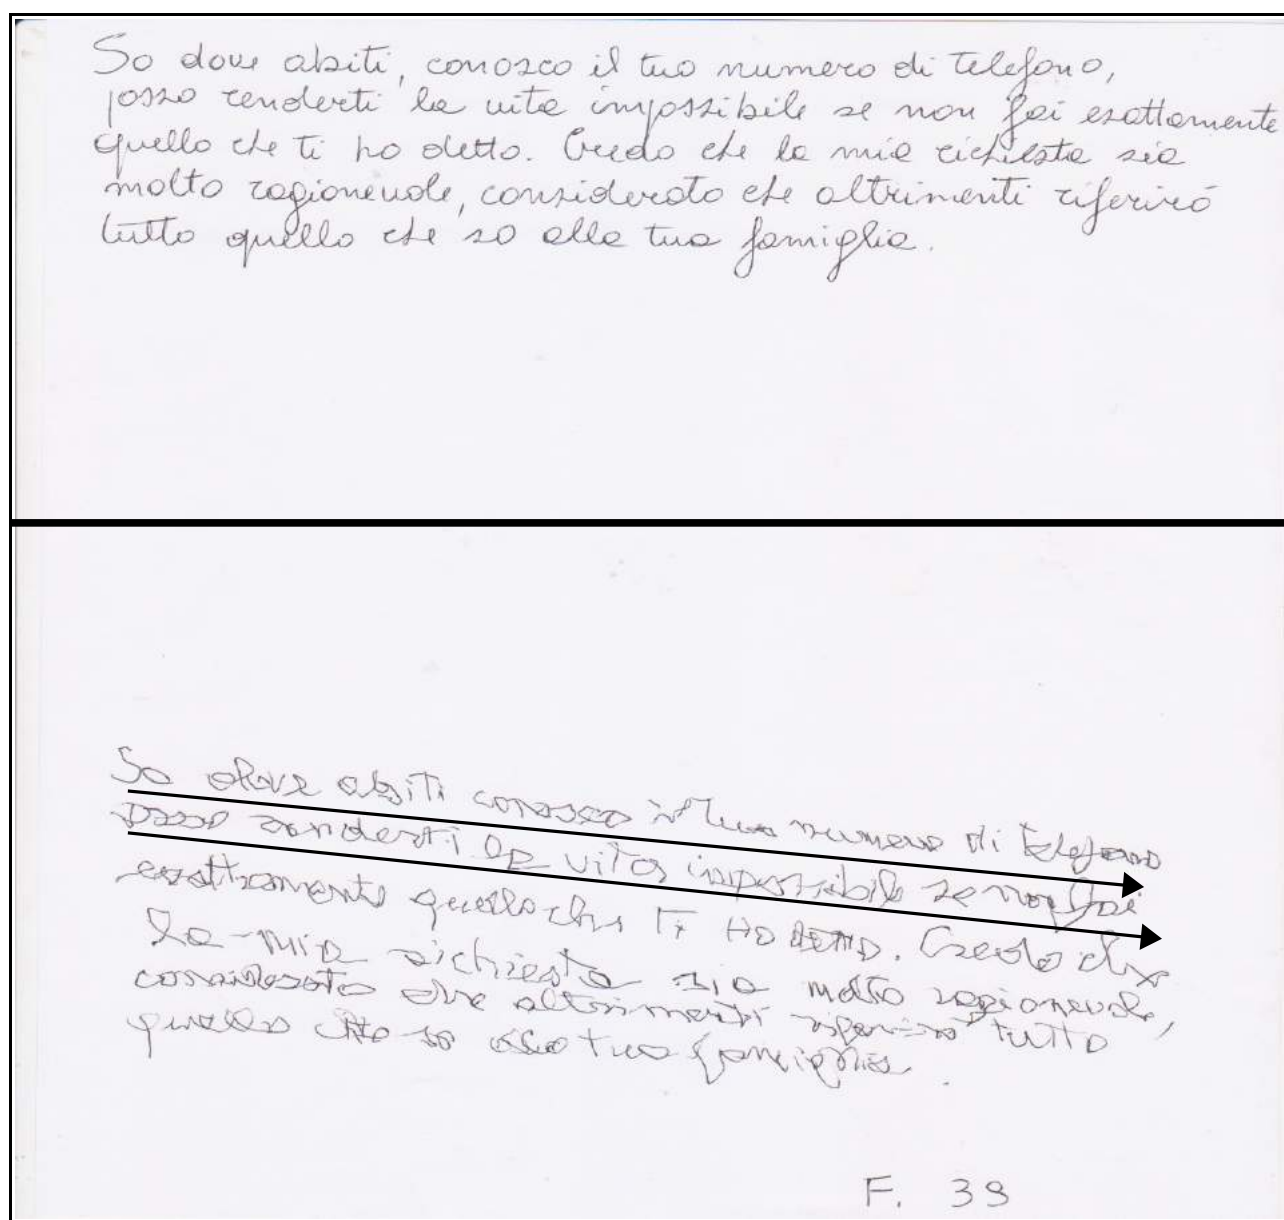 So dove abiti, conosco il tuo numero di telefono,
posso renderti la vita impossibile se non fai esattamente
quello che ti ho detto. Credo che la mia richiesta sia
molto ragionevole, considerato che altrimenti riferirò
tutto quello che so alla tua famiglia.
So dove abiti conosco il tuo numero di telefono
posso renderti la vita impossibile se non fai
esattamente quello che ti HO DETTO. Credo che
la mia richiesta sia molto ragionevole,
considerato che altrimenti riferirò tutto
quello che so alla tua famiglia.
F. 39